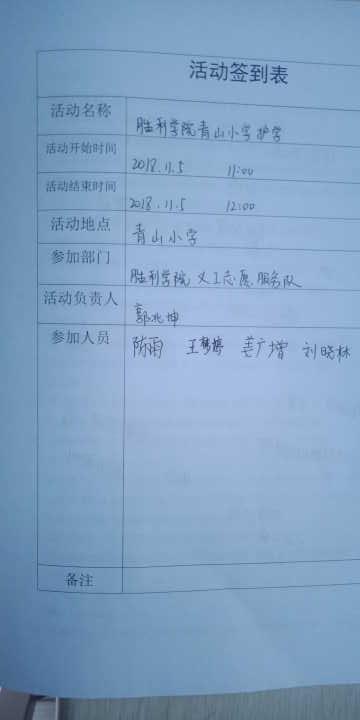 活动签到表
活动名称 胜利学院青山小学护学
活动开始时间 2018.11.5 11:00
活动结束时间 2018.11.5 12:00
活动地点 青山小学
参加部门 胜利学院 义工志愿服务队
活动负责人 郭兆坤
参加人员 陈雨 王梦婷 姜广增 刘晓林
备注